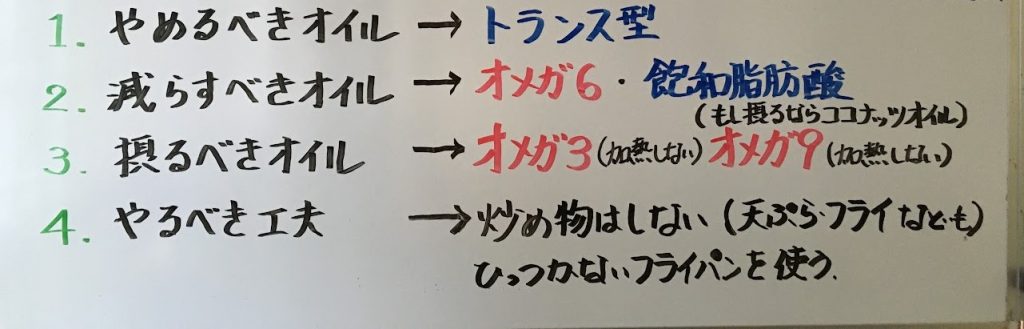 1. やめるべきオイル → トランス型
2. 減らすべきオイル → オメガ6・飽和脂肪酸
(もし摂るならココナッツオイル)
3. 摂るべきオイル → オメガ3(加熱しない) オメガ9(加熱しない)
4. やるべき工夫 → 炒め物はしない (天ぷら・フライなども)
ひっつかないフライパンを使う.